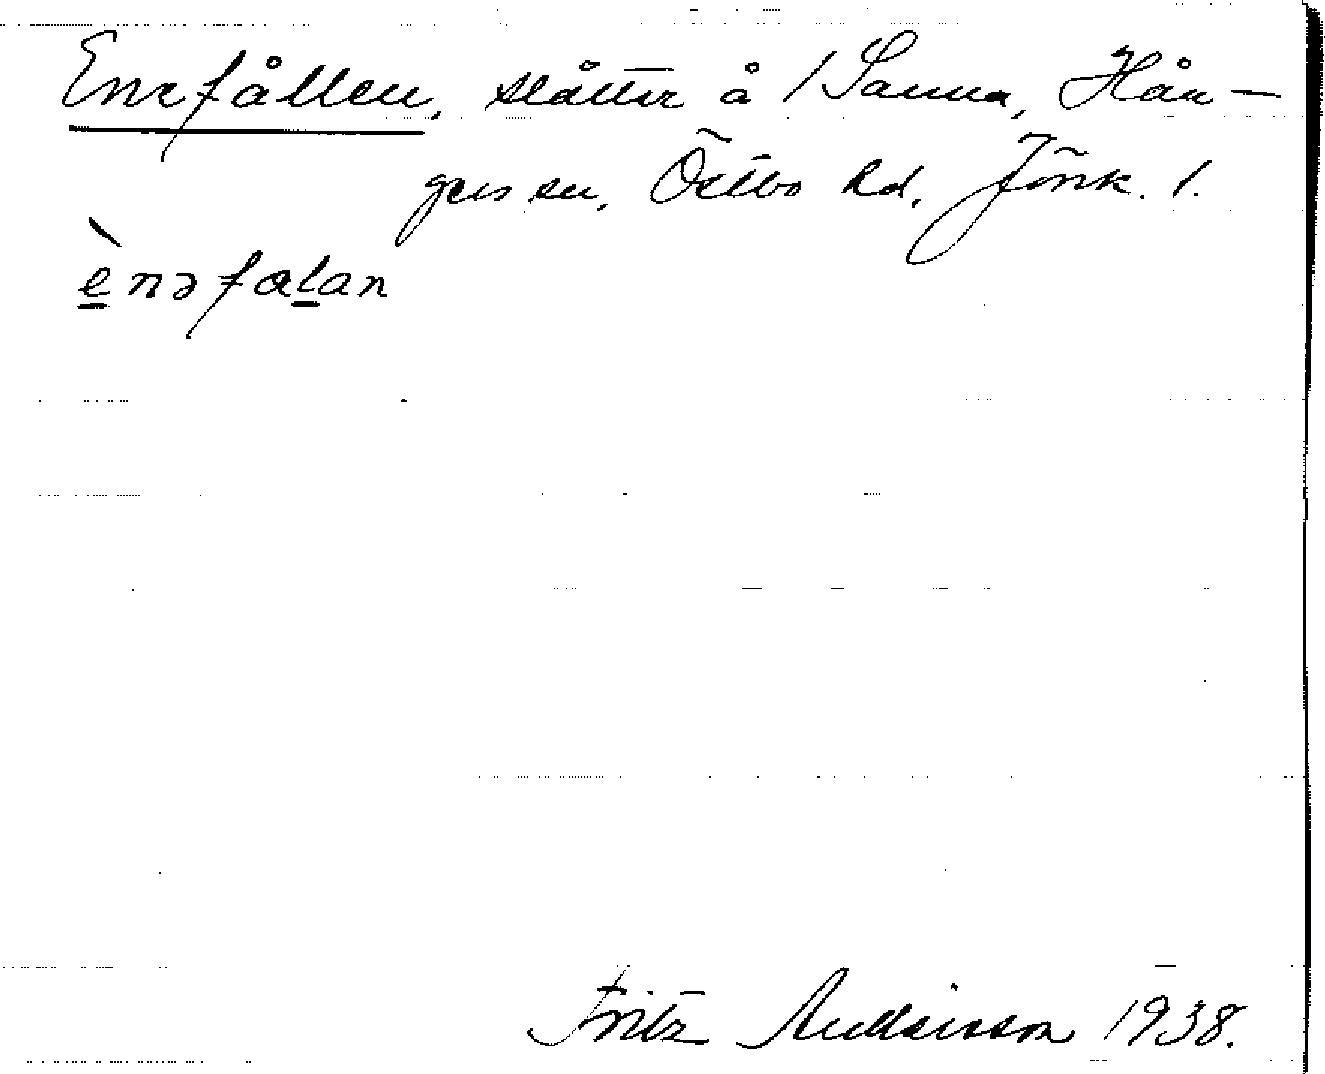 Enefållen, slåtter å 1 Sanna, Hån-
gers sn, Östbo hd, Jönk. l.
ènəfalan
Fritz Audaisson 1938.